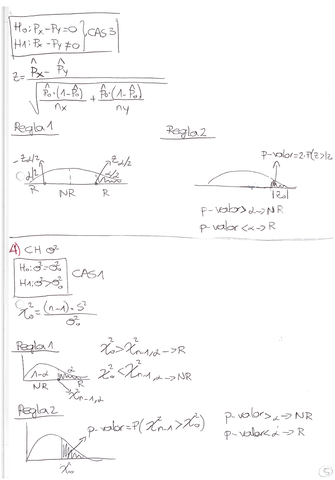 H₀: Px - Py = 0
H1: Px - Py ≠ 0
CAS 3
Z = P̂x - P̂y / √(P̂₀·(1-P̂₀)/nx + P̂₀·(1-P̂₀)/ny)
Regla 1
Regla 2
-Zα/2 Zα/2
α/2 α/2
R NR R
p-valor = 2·P(Z>|Z₀|)
|Z₀|
p-valor > α → NR
p-valor < α → R
4) CH σ²
H₀: σ² = σ₀²
H1: σ² > σ₀²
CAS 1
χ₀² = (n-1)·S² / σ₀²
Regla 1
χ₀² > χ²n-1,α → R
χ₀² < χ²n-1,α → NR
1-α α
NR R
χ²n-1,α
Regla 2
p-valor = P(χ²n-1 > χ₀²)
p-valor > α → NR
p-valor < α → R
χ₀²
5